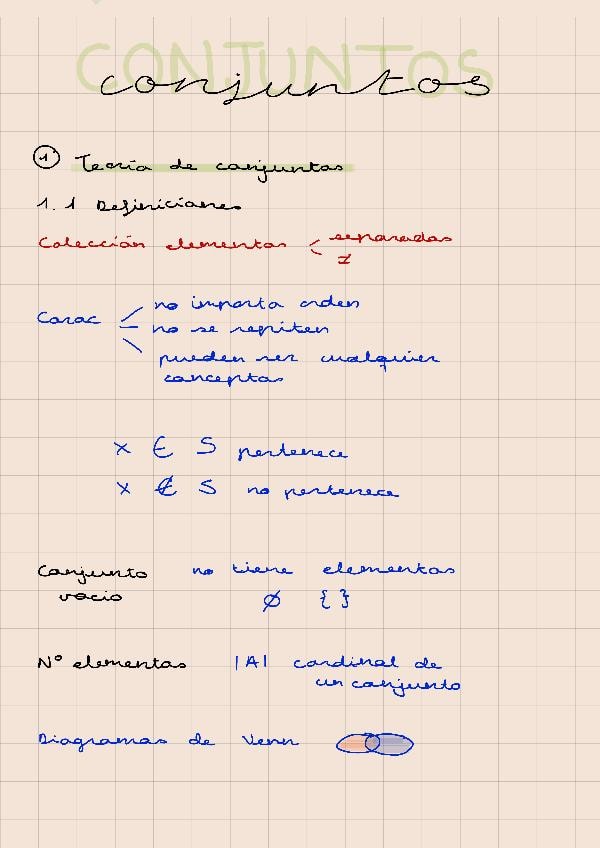 CONJUNTOS
conjuntos
1 Teoría de conjuntos
1.1 Definiciones
Colección elementos < separados
≠
Carac no importa orden
no se repiten
pueden ser cualquier
conceptos
x ∈ S pertenece
x ∉ S no pertenece
Conjunto no tiene elementos
vacio ∅ { }
Nº elementos |A| cardinal de
un conjunto
Diagramas de Venn